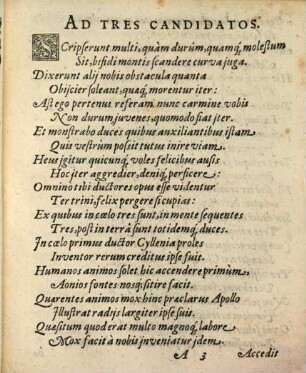 AD TRES CANDIDATOS.
SCripserunt multi, quàm durúm, quamq́; molestum
Sit, bifidi montis scandere curva juga.
Dixerunt alij nobis obstacula quanta
Obijcier soleant, quæq́; morentur iter:
Ast ego pertenus referam nunc carmine vobis
Non durum juvenes, quomodo fiat iter.
Et monstrabo duces quibus auxiliantibus istam
Quis vestrûm possit tutus inire viam.
Heus igitur quicunq́; voles felicibus ausis
Hoc iter aggredier, deniq́; perficere:
Omninò tibi ductores opus esse videntur
Ter trini, felix pergere si cupias:
Ex quibus in cœlo tres sunt, in mente sequentes
Tres, post in terrâ sunt totidemq́; duces.
In cœlo primus ductor Cyllenia proles
Inventor rerum creditus ipse fuit.
Humanos animos solet hic accendere primùm
Aonios fontes nosq́; sitire facit.
Quærentes animos mox hinc præclarus Apollo
Illustrat radijs largiter ipse suis.
Quæsitum quod erat multo magnoq́; labore
Mox facit à nobis inveniatur idem.
A 3 Accedit